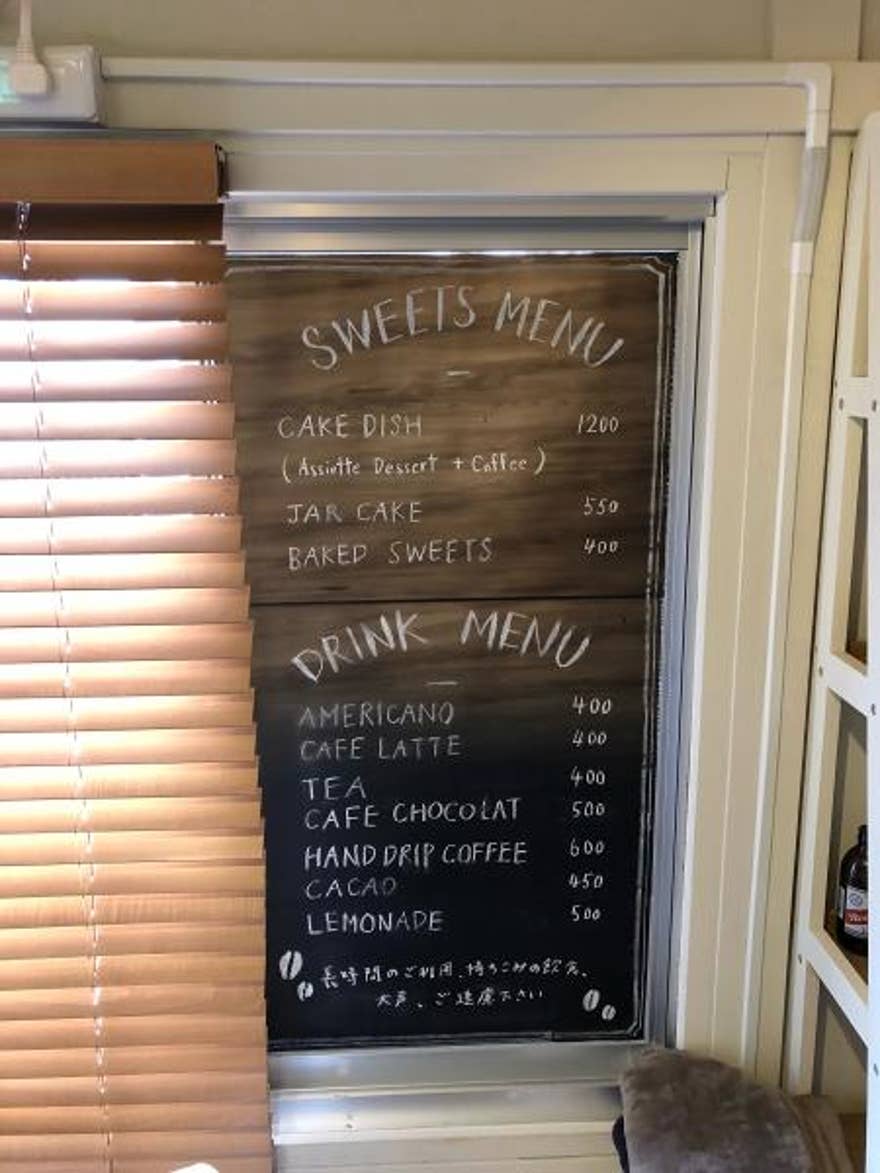 SWEETS MENU
CAKE DISH 1200
(Assiette Dessert + Coffee)
JAR CAKE 550
BAKED SWEETS 400
DRINK MENU
AMERICANO 400
CAFE LATTE 400
TEA 400
CAFE CHOCOLAT 500
HAND DRIP COFFEE 600
CACAO 450
LEMONADE 500
長時間のご利用、持ちこみの飲食、
大声、ご遠慮下さい